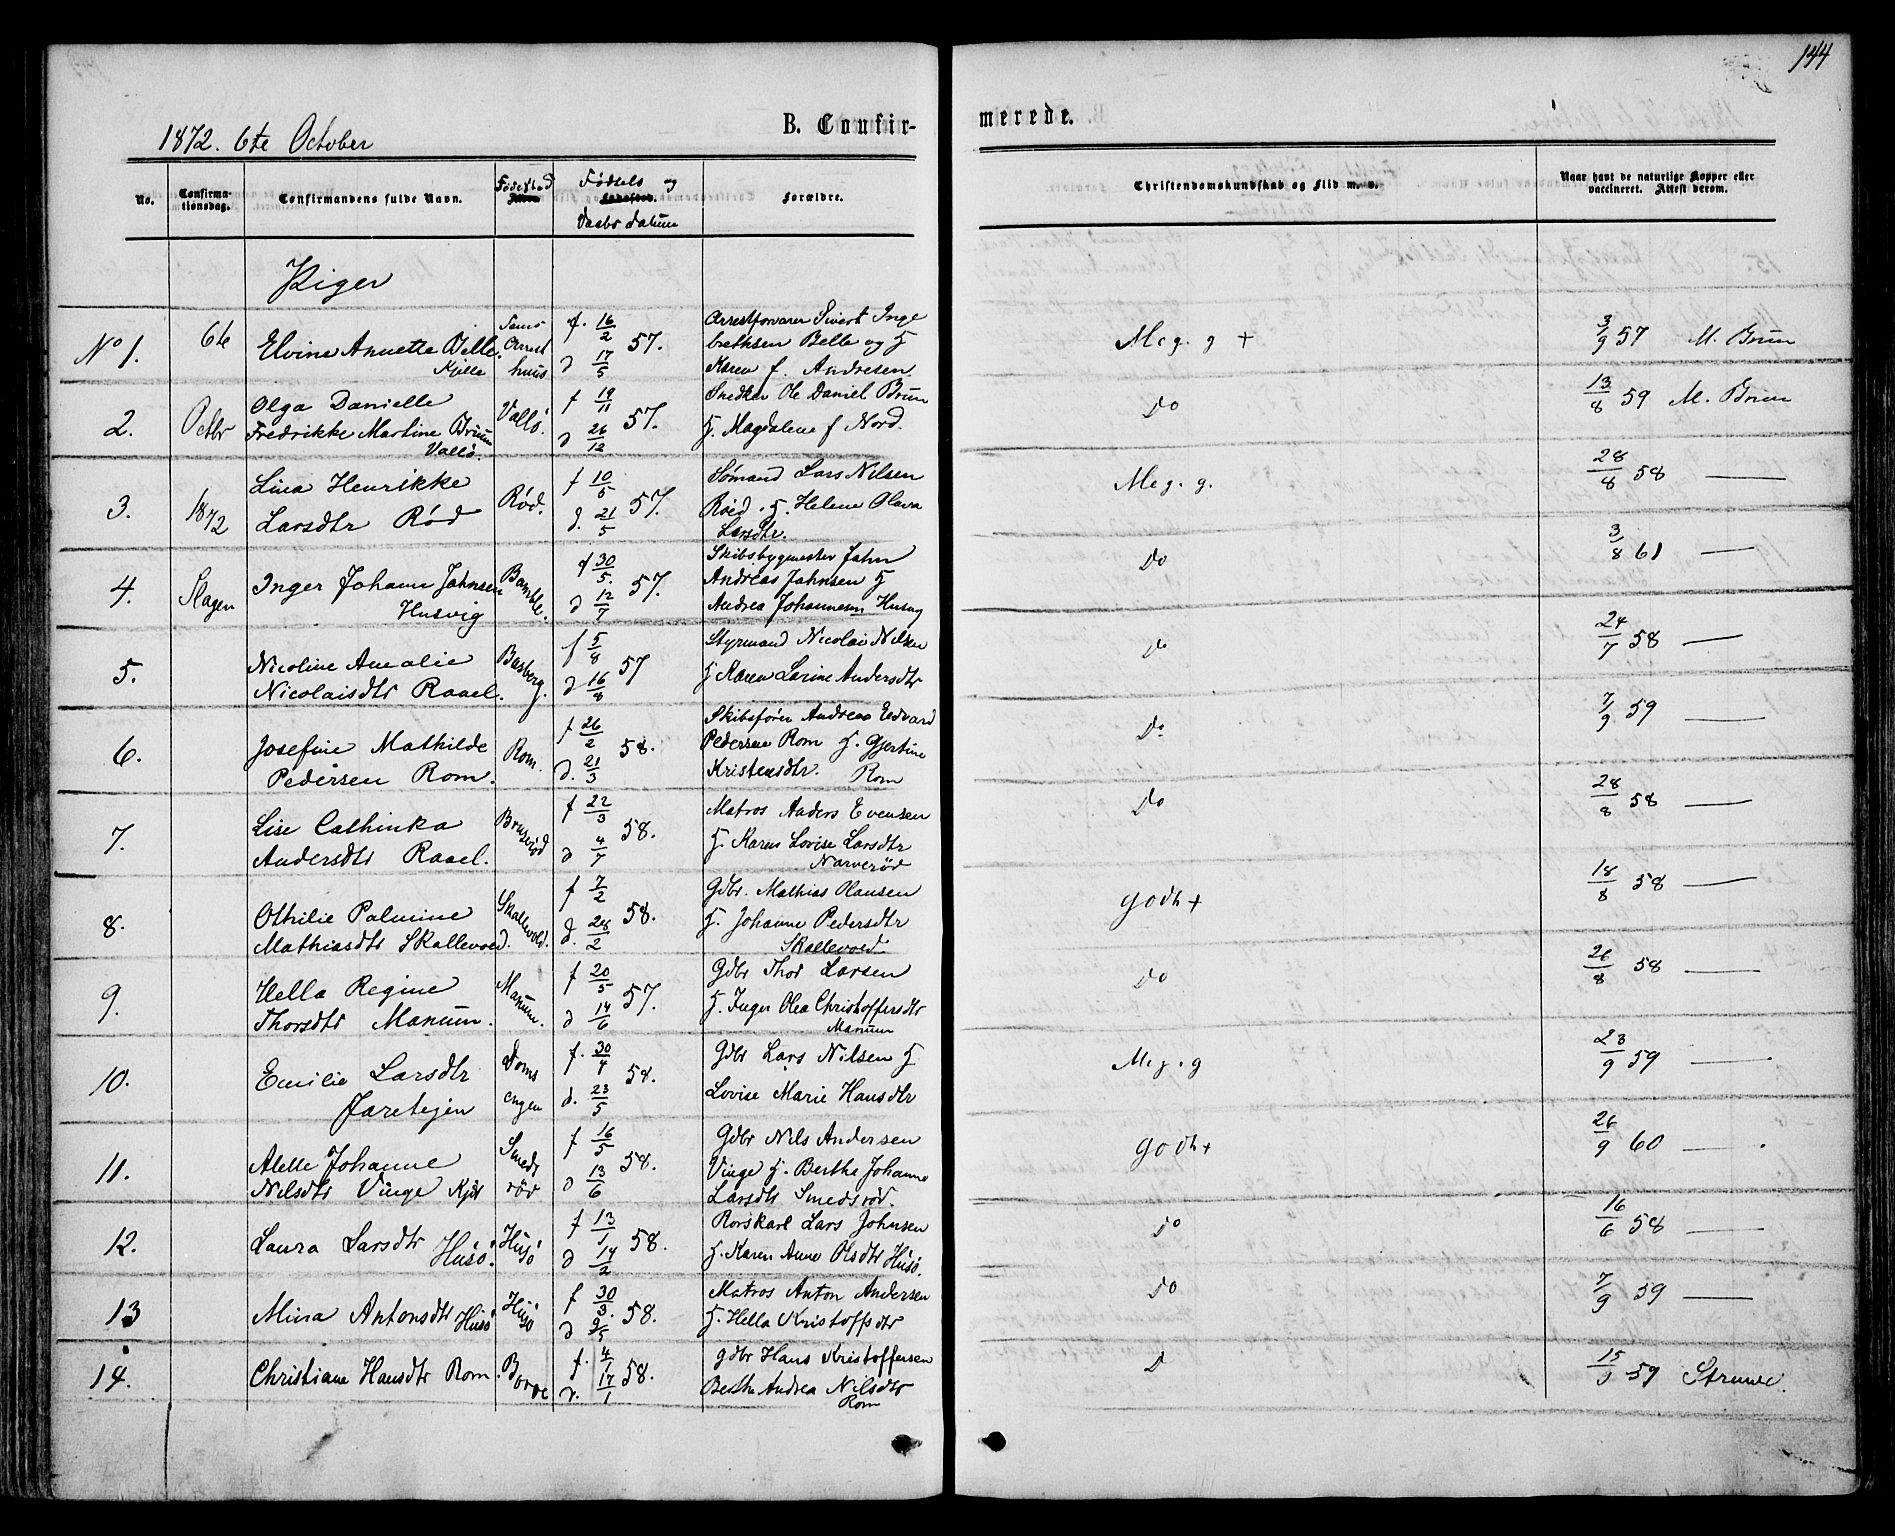 144
B. Confir-
merede.
1872. 6te October
No.
Confirma-
tionsdag.
Confirmandens fulde Navn.
Fødested
Fødsels og
Daabs datum
Forældre.
Christendomskundskab og Flid m. v.
Naar havt de naturlige Kopper eller
vaccineret. Attest derom.
Piger
No 1. 6te Elvine Annette Belle Kjelle Arrest huus f. 16/2 d 17/5 57.
Arrestforvarer Sivert Inge
brethsen Belle og H
Karen f. Andresen
Meg. g + 3/9 57 M. Brun
2. Octbr Olga Danielle
Fredrikke Martine Bruun
Vallø.
Vallö. f 19/11 d 26/12 57.
Snedker Ole Daniel Brun
H. Magdalene f Nord.
Do 13/8 59 M. Brun
3. 1872 Lina Henrikke
Larsdtr Rød
Rød. f 10/5 d. 21/5 57.
Sømand Lars Nilsen
Røed. H. Helene Olava
Larsdtr.
Meg. g. 28/8 58 —
4. Slagen Inger Johanne Jahnsen
Husvig
Bamble. f 30/5. d 12/7 57.
Skibsbygmester Jahn
Andreas Jahnsen H
Andrea Johannesen Husvig
Do 3/8 61 —
5. Nicoline Amalie
Nicolaisdtr Raael.
Basberg. f 5/8 d 16/8 57
Styrmand Nicolai Nilsen
H Karen Larine Andersdtr
Do 24/7 58 —
6. Josefine Mathilde
Pedersen Rom.
Rom. f 26/2 d. 21/3 58.
Skibsfører Andreas Edvard
Pedersen Rom H. Gjertine
Kristensdtr. Rom
Do 7/9 59 —
7. Lise Cathinka
Andersdtr Raael.
Bruserød f 22/3 d 4/7 58.
Matros Anders Evensen
H. Karen Lovise Larsdtr
Narverød
Do 28/8 58 —
8. Othilie Palmine
Mathiasdtr Skallevold.
Skallevold. f 7/2 d. 28/2 58.
Gdbr. Mathias Olausen
H. Johanne Pedersdtr
Skallevold
godt + 18/8 58 —
9. Hella Regine
Thorsdtr Manum.
Manum. f 20/5 d 14/6 57.
Gdbr Thor Larsen
H. Inger Olea Christoffersdtr
Manum
Do 26/8 58 —
10. Emilie Larsdtr
Jaretejen
Doms
engen f. 30/4 d. 23/5 58.
Gdbr Lars Nilsen H
Lovise Marie Hansdtr
Meg. g 23/9 59 —
11. Alette Johanne
Nilsdtr Vinge
Smeds
rød f 16/5 d 13/6 58.
Gdbr Nils Andersen
Vinge H. Berthe Johanne
Larsdtr Smedsrød.
godt + 26/9 60 —
12. Laura Larsdtr Husö.
Husö f 13/1 d 14/2 58.
Rorskarl Lars Johnsen
H. Karen Anne Olsdtr Husö.
Do 16/6 58 —
13 Mina Antonsdtr Husö
Husö f 30/3. d 9/5 58.
Matros Anton Andersen
H. Hella Kristoffsdtr
Do 7/9 59 —
14. Christiane Hansdtr Rom.
Borre f. 4/1 d. 17/1 58.
gdbr Hans Kristoffersen
Berthe Andrea Nilsdtr
Rom
D 15/9 59 Struwe.